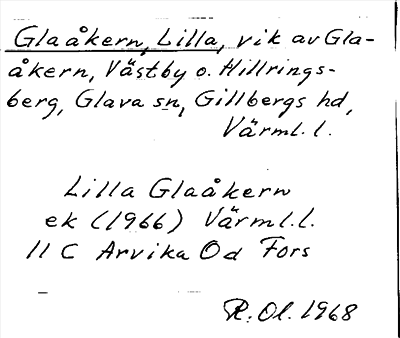 Glaåkern, Lilla, vik av Gla-
åkern, Västby o. Hillrings-
berg, Glava sn, Gillbergs hd,
Värml. l.
Lilla Glaåkern
ek (1966) Värml. l.
11 C Arvika Od Fors
R. Ol. 1968